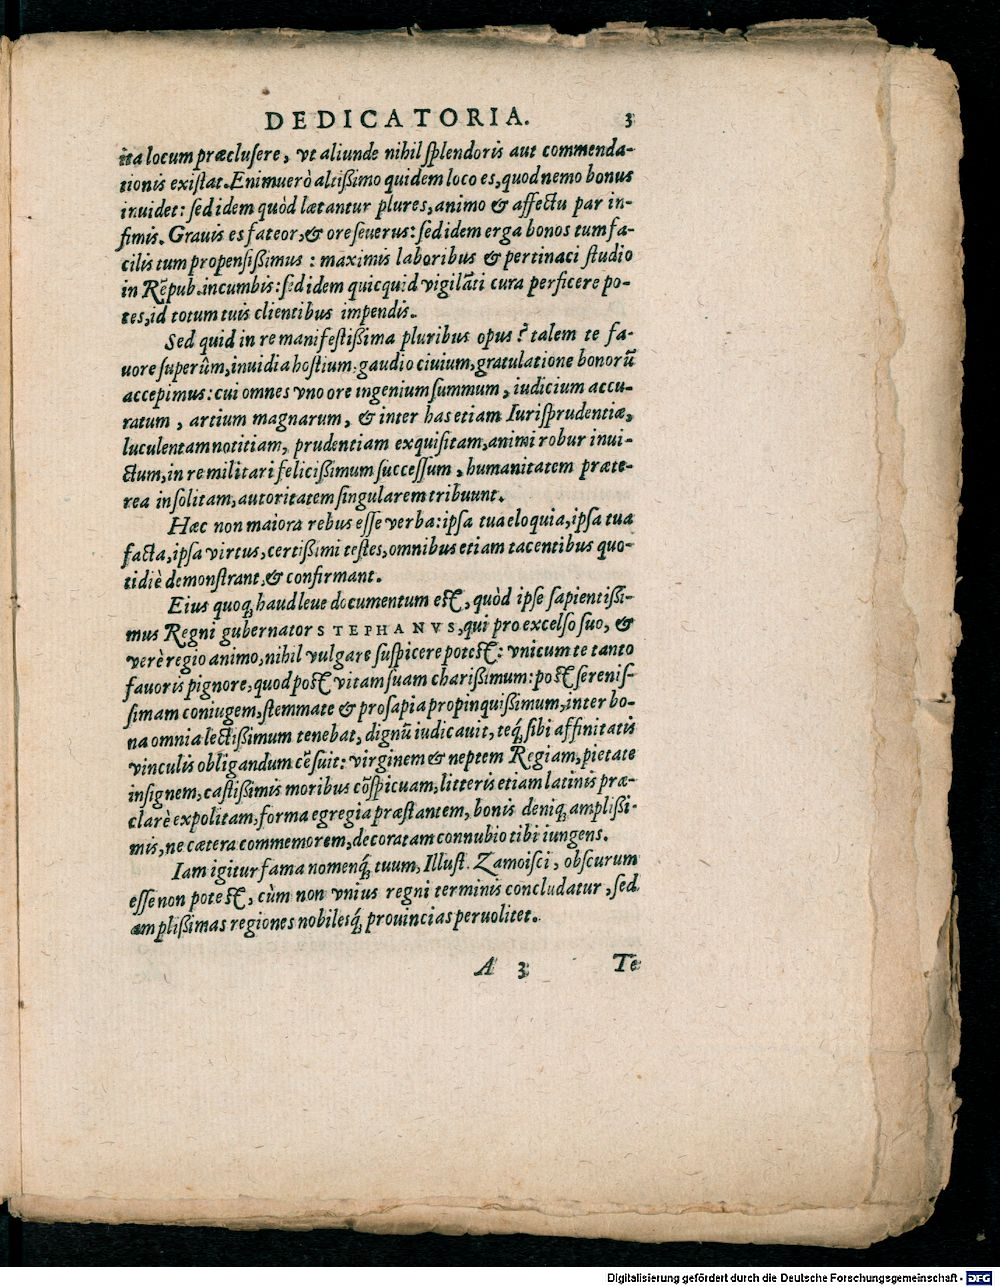 DEDICATORIA. 3
ita locum præclusere, vt aliunde nihil splendoris aut commenda-
tionis existat. Enimuerò altißimo quidem loco es, quod nemo bonus
inuidet: sed idem quòd lætantur plures, animo & affectu par in-
fimis. Grauis es fateor, & ore seuerus: sed idem erga bonos tum fa-
cilis tum propensißimus : maximis laboribus & pertinaci studio
in Rẽpub. incumbis: sed idem quicquid vigilãti cura perficere po-
tes, id totum tuis clientibus impendis.
Sed quid in re manifestißima pluribus opus? talem te fa-
uore superûm, inuidia hostium, gaudio ciuium, gratulatione bonorũ
accepimus: cui omnes vno ore ingenium summum, iudicium accu-
ratum, artium magnarum, & inter has etiam Iurisprudentiæ,
luculentam notitiam, prudentiam exquisitam, animi robur inui-
ctum, in re militari felicißimum successum, humanitatem præte-
rea insolitam, autoritatem singularem tribuunt.
Hæc non maiora rebus esse verba: ipsa tua eloquia, ipsa tua
facta, ipsa virtus, certißimi testes, omnibus etiam tacentibus quo-
tidiè demonstrant, & confirmant.
Eius quoq; haud leue documentum est, quòd ipse sapientißi-
mus Regni gubernator STEPHANVS, qui pro excelso suo, &
verè regio animo, nihil vulgare suspicere potest: vnicum te tanto
fauoris pignore, quod post vitam suam charißimum: post serenis-
simam coniugem, stemmate & prosapia propinquißimum, inter bo-
na omnia lectißimum tenebat, dignũ iudicauit, teq́; sibi affinitatis
vinculis obligandum cẽsuit: virginem & neptem Regiam, pietate
insignem, castißimis moribus cõspicuam, litteris etiam latinis præ-
clarè expolitam, forma egregia præstantem, bonis deniq; amplißi-
mis, ne cætera commemorem, decoratam connubio tibi iungens.
Iam igitur fama nomenq́; tuum, Illust. Zamoisci, obscurum
esse non potest, cùm non vnius regni terminis concludatur, sed
amplißimas regiones nobilesq́; prouincias peruolitet.
A 3 Te
Digitalisierung gefördert durch die Deutsche Forschungsgemeinschaft - DFG